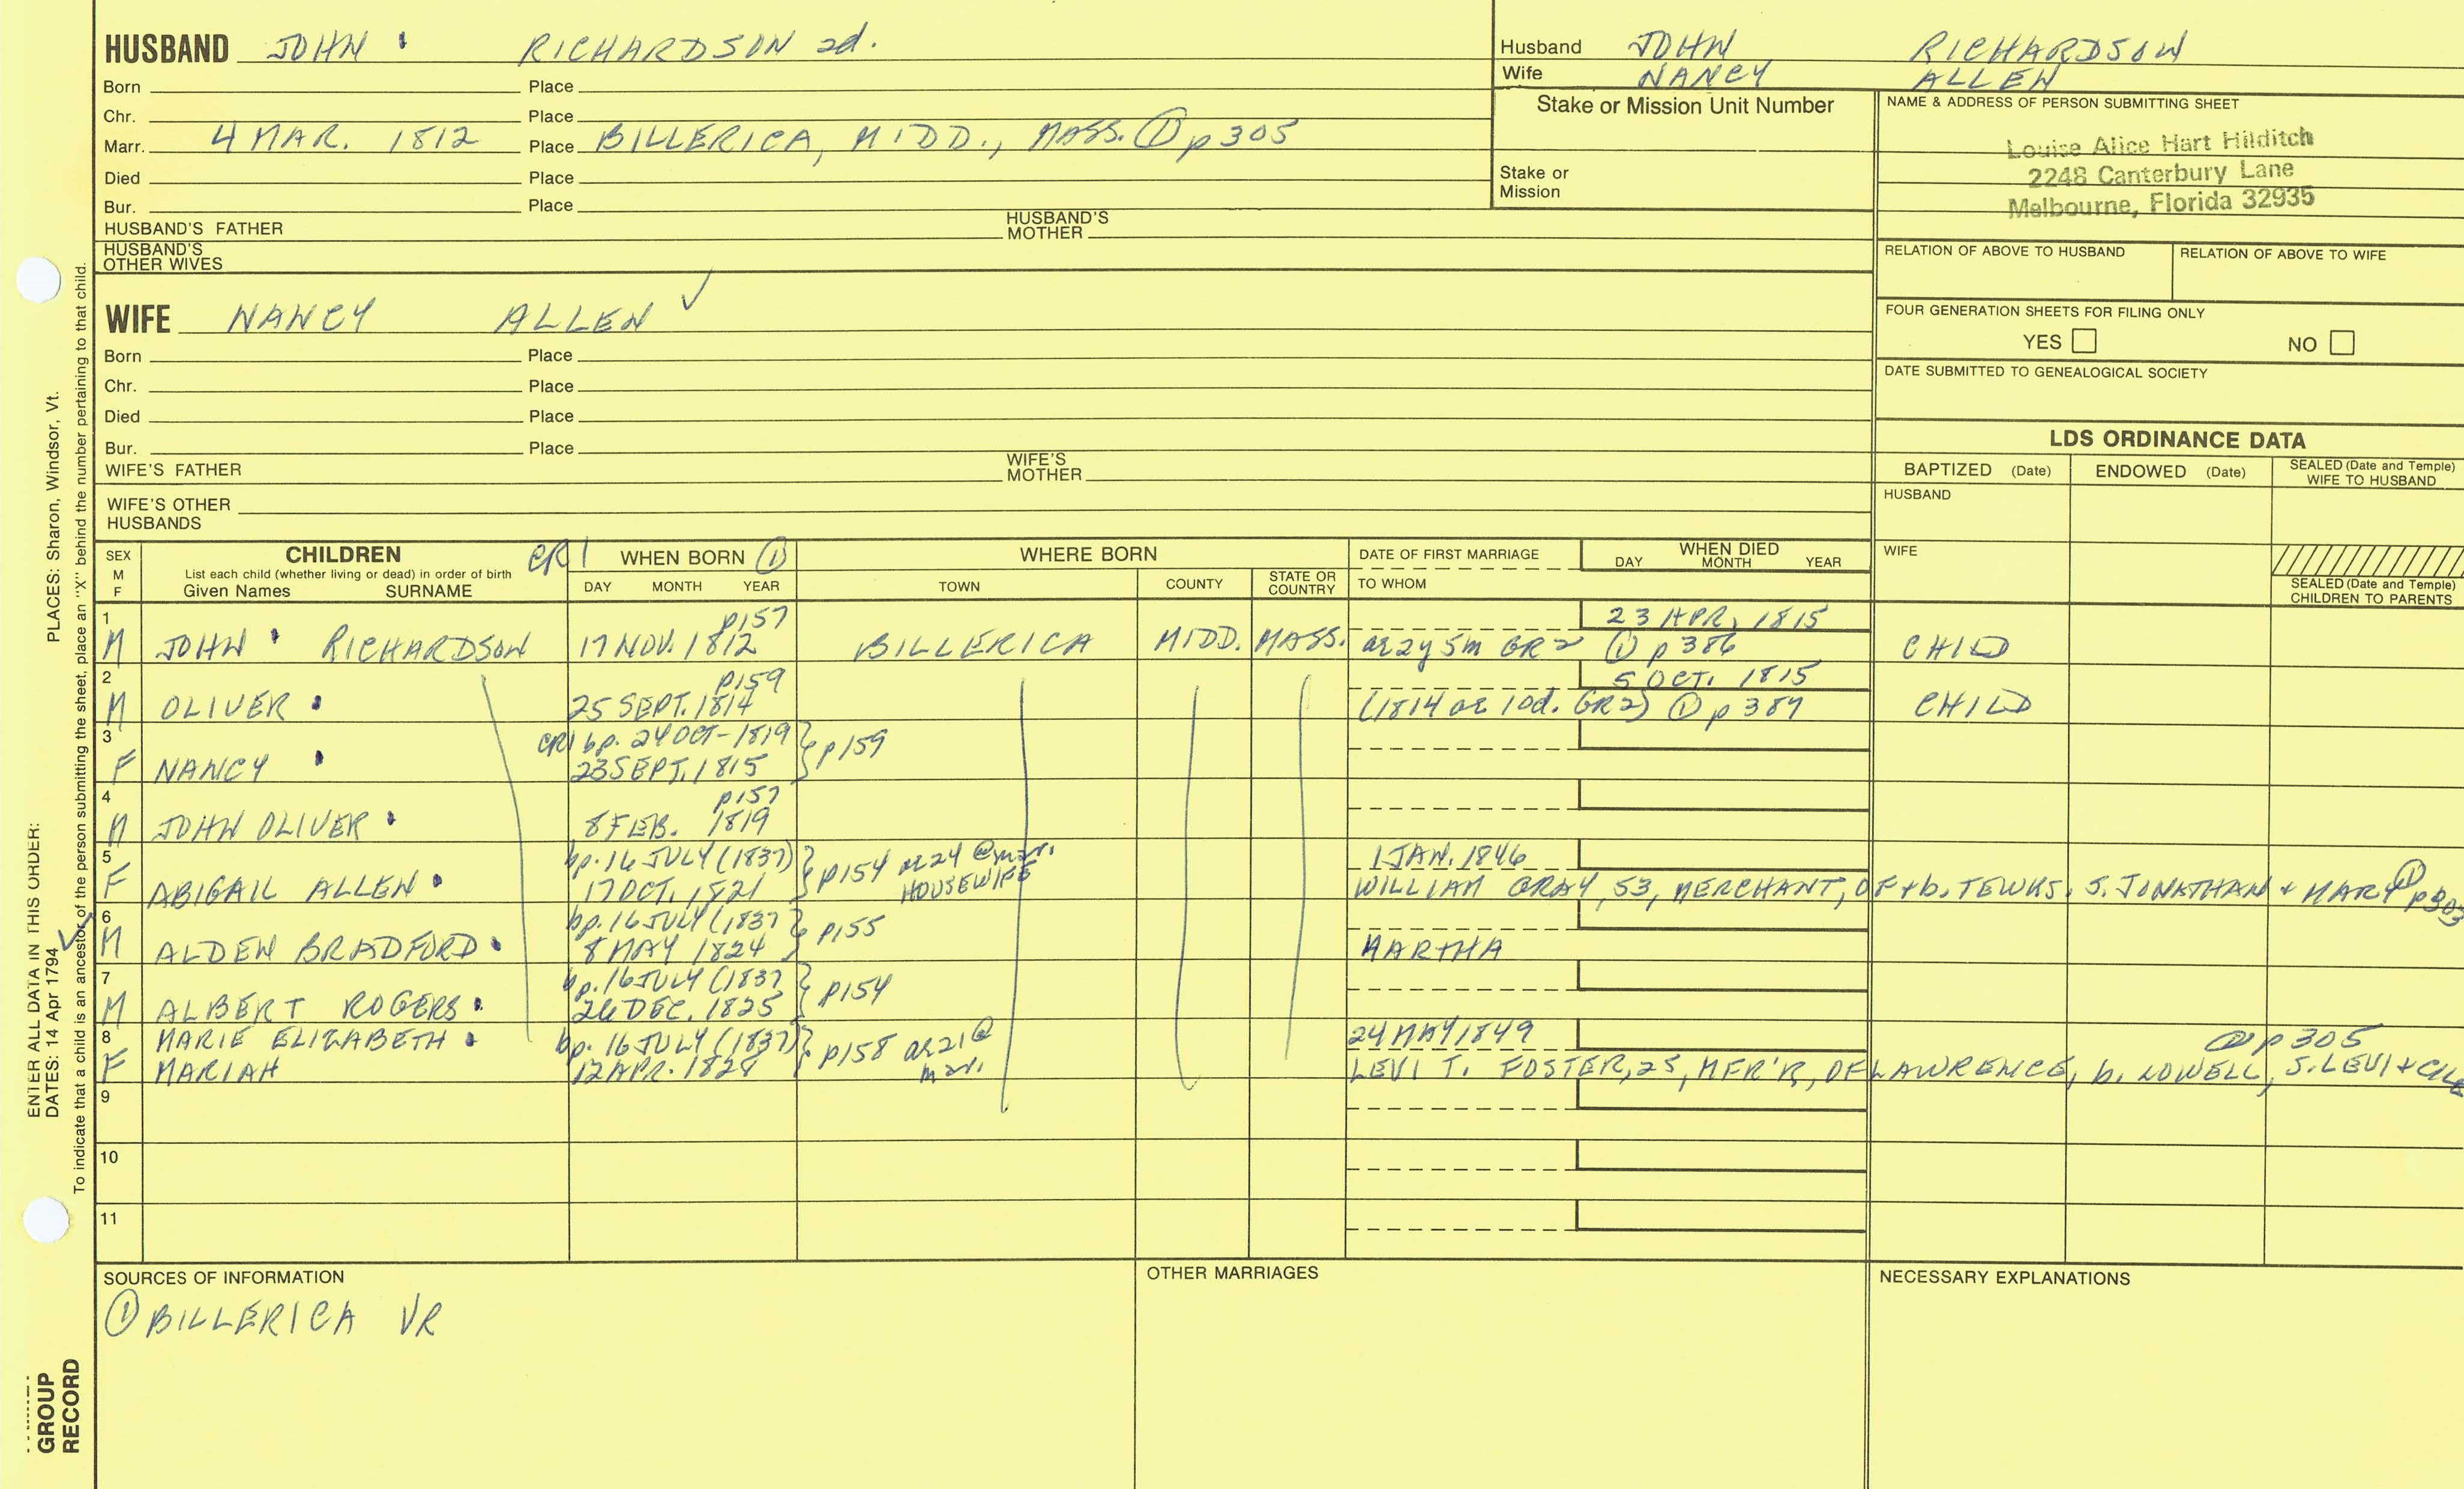 HUSBAND JOHN RICHARDSON 2d.
Born Place
Chr. Place
Marr. 4 MAR. 1812 Place BILLERICA, MIDD., MASS. ① p 305
Died Place
Bur. Place
HUSBAND'S FATHER HUSBAND'S MOTHER
HUSBAND'S OTHER WIVES
Husband JOHN RICHARDSON
Wife NANCY ALLEN
Stake or Mission Unit Number
Stake or Mission
NAME & ADDRESS OF PERSON SUBMITTING SHEET
Louise Alice Hart Hilditch
2248 Canterbury Lane
Melbourne, Florida 32935
RELATION OF ABOVE TO HUSBAND RELATION OF ABOVE TO WIFE
FOUR GENERATION SHEETS FOR FILING ONLY
YES NO
DATE SUBMITTED TO GENEALOGICAL SOCIETY
WIFE NANCY ALLEN ✓
Born Place
Chr. Place
Died Place
Bur. Place
WIFE'S FATHER WIFE'S MOTHER
WIFE'S OTHER HUSBANDS
LDS ORDINANCE DATA
BAPTIZED (Date) ENDOWED (Date) SEALED (Date and Temple) WIFE TO HUSBAND
HUSBAND
WIFE
SEALED (Date and Temple) CHILDREN TO PARENTS
SEX M F
CHILDREN
List each child (whether living or dead) in order of birth
Given Names SURNAME
CR1 WHEN BORN ①
DAY MONTH YEAR
WHERE BORN
TOWN COUNTY STATE OR COUNTRY
DATE OF FIRST MARRIAGE
TO WHOM
WHEN DIED
DAY MONTH YEAR
1 p157 23 APR. 1815
M JOHN RICHARDSON 17 NOV. 1812 BILLERICA MIDD. MASS. ae 2y 5m GR2 ① p 386 CHILD
2 p159 5 OCT. 1815
M OLIVER 25 SEPT. 1814 (1814 ae 10d. GR2) ① p 387 CHILD
3 CR1 bp. 24 OCT. 1819 } p159
F NANCY 23 SEPT. 1815
4 p157
M JOHN OLIVER 8 FEB. 1819
5 bp. 16 JULY (1837) } p154 ae 24 @ mar. 1 JAN. 1846
F ABIGAIL ALLEN 17 OCT. 1821 HOUSEWIFE WILLIAM GRAY, 53, MERCHANT, OF + b. TEWKS. S. JONATHAN + MARY ① p303
6 bp. 16 JULY (1837 } p155
M ALDEN BRADFORD 8 MAY 1824 MARTHA
7 bp. 16 JULY (1837 } p154
M ALBERT ROGERS 26 DEC. 1825
8 MARIE ELIZABETH bp. 16 JULY (1837) } p158 ae 21 @ mar. 24 MAY 1849 ① p 305
F MARIAH 12 APR. 1828 LEVI T. FOSTER, 25, MFR'R, OF LAWRENCE, b. LOWELL, S. LEVI +
9
10
11
SOURCES OF INFORMATION
① BILLERICA VR
OTHER MARRIAGES
NECESSARY EXPLANATIONS
ENTER ALL DATA IN THIS ORDER:
DATES: 14 Apr 1794 PLACES: Sharon, Windsor, Vt.
To indicate that a child is an ancestor of the person submitting the sheet, place an "X" behind the number pertaining to that child.
GROUP
RECORD